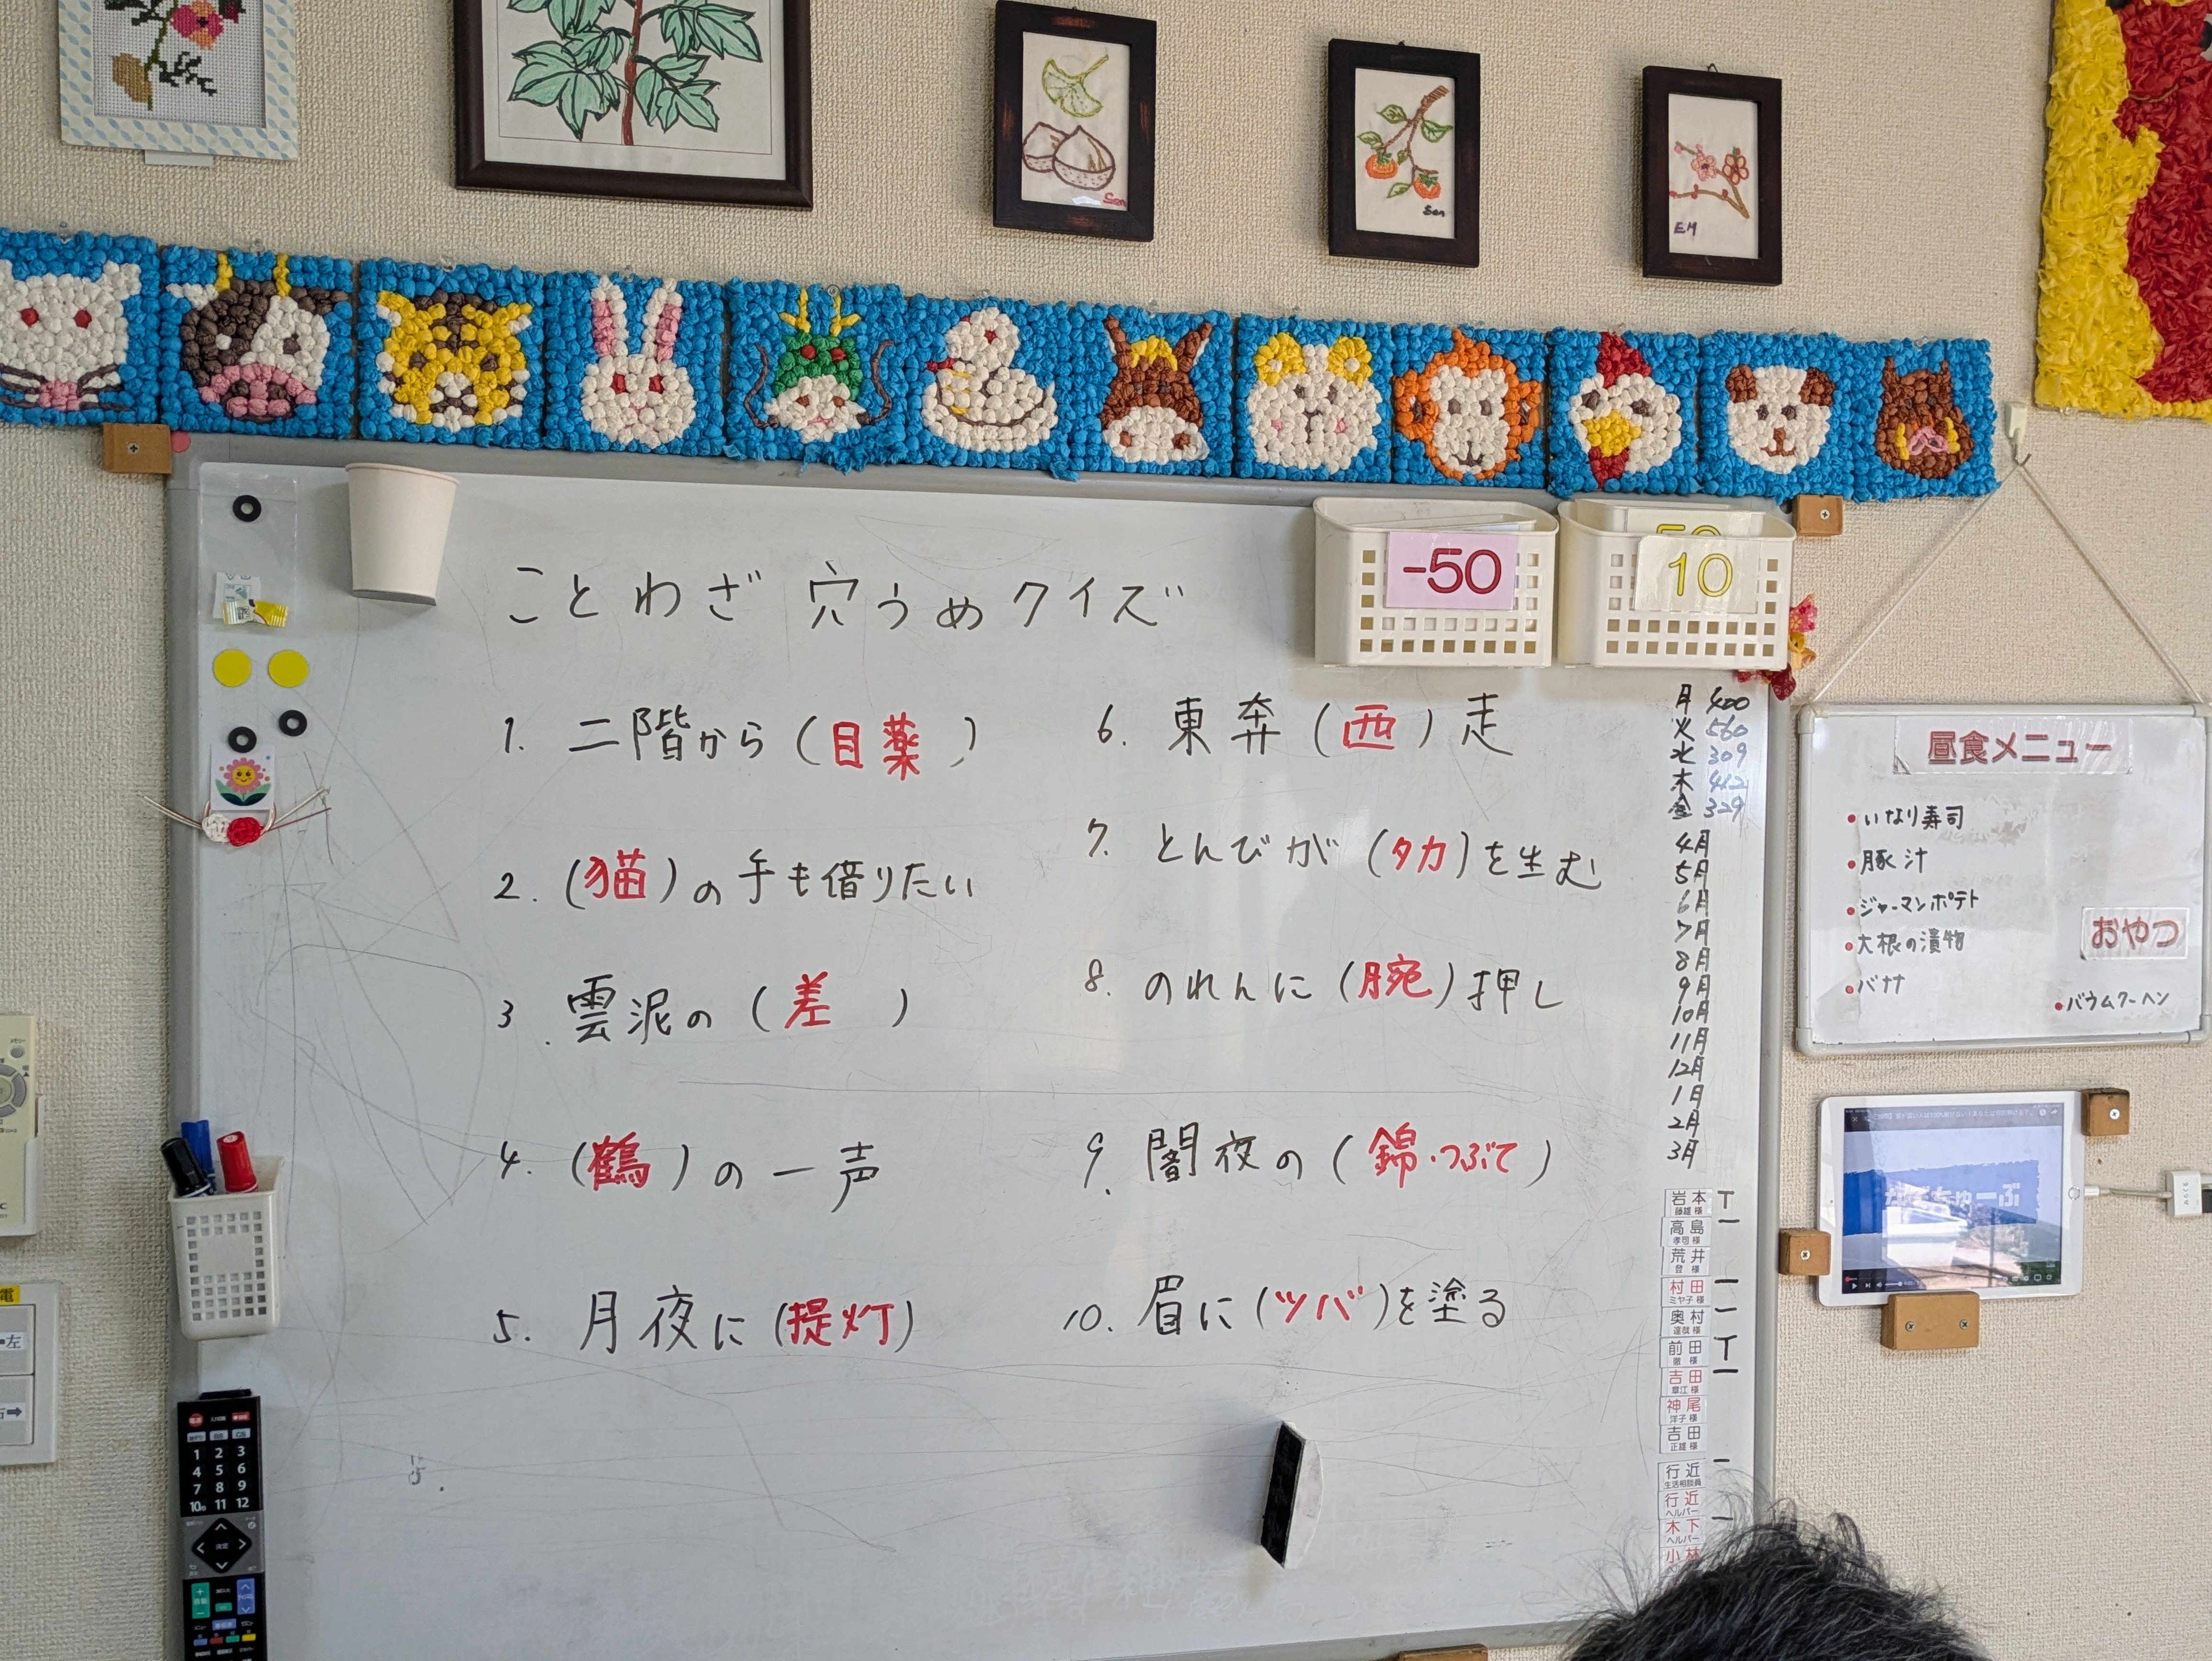 Sen
Sen
EM
-50
50
10
ことわざ 穴うめクイズ
1. 二階から(目薬)
2. (猫)の手も借りたい
3. 雲泥の(差)
4. (鶴)の一声
5. 月夜に(提灯)
6. 東奔(西)走
7. とんびが(タカ)を生む
8. のれんに(腕)押し
9. 闇夜の(錦・つぶて)
10. 眉に(ツバ)を塗る
月 400
火 560
水 309
木 412
金 329
4月
5月
6月
7月
8月
9月
10月
11月
12月
1月
2月
3月
岩本 T
高島
孝司 様
荒井
登 様
村田
ミヤ子 様
奥村
前田 T
吉田
神尾
洋子 様
吉田
正雄 様
行近
生活相談員
行近
ヘルパー
木下
ヘルパー
小林
昼食メニュー
・いなり寿司
・豚汁
・ジャーマンポテト
・大根の漬物
・バナナ
おやつ
・バウムクーヘン
ちゅーぶ
電
左
1 2 3
4 5 6
7 8 9
10 11 12
決定